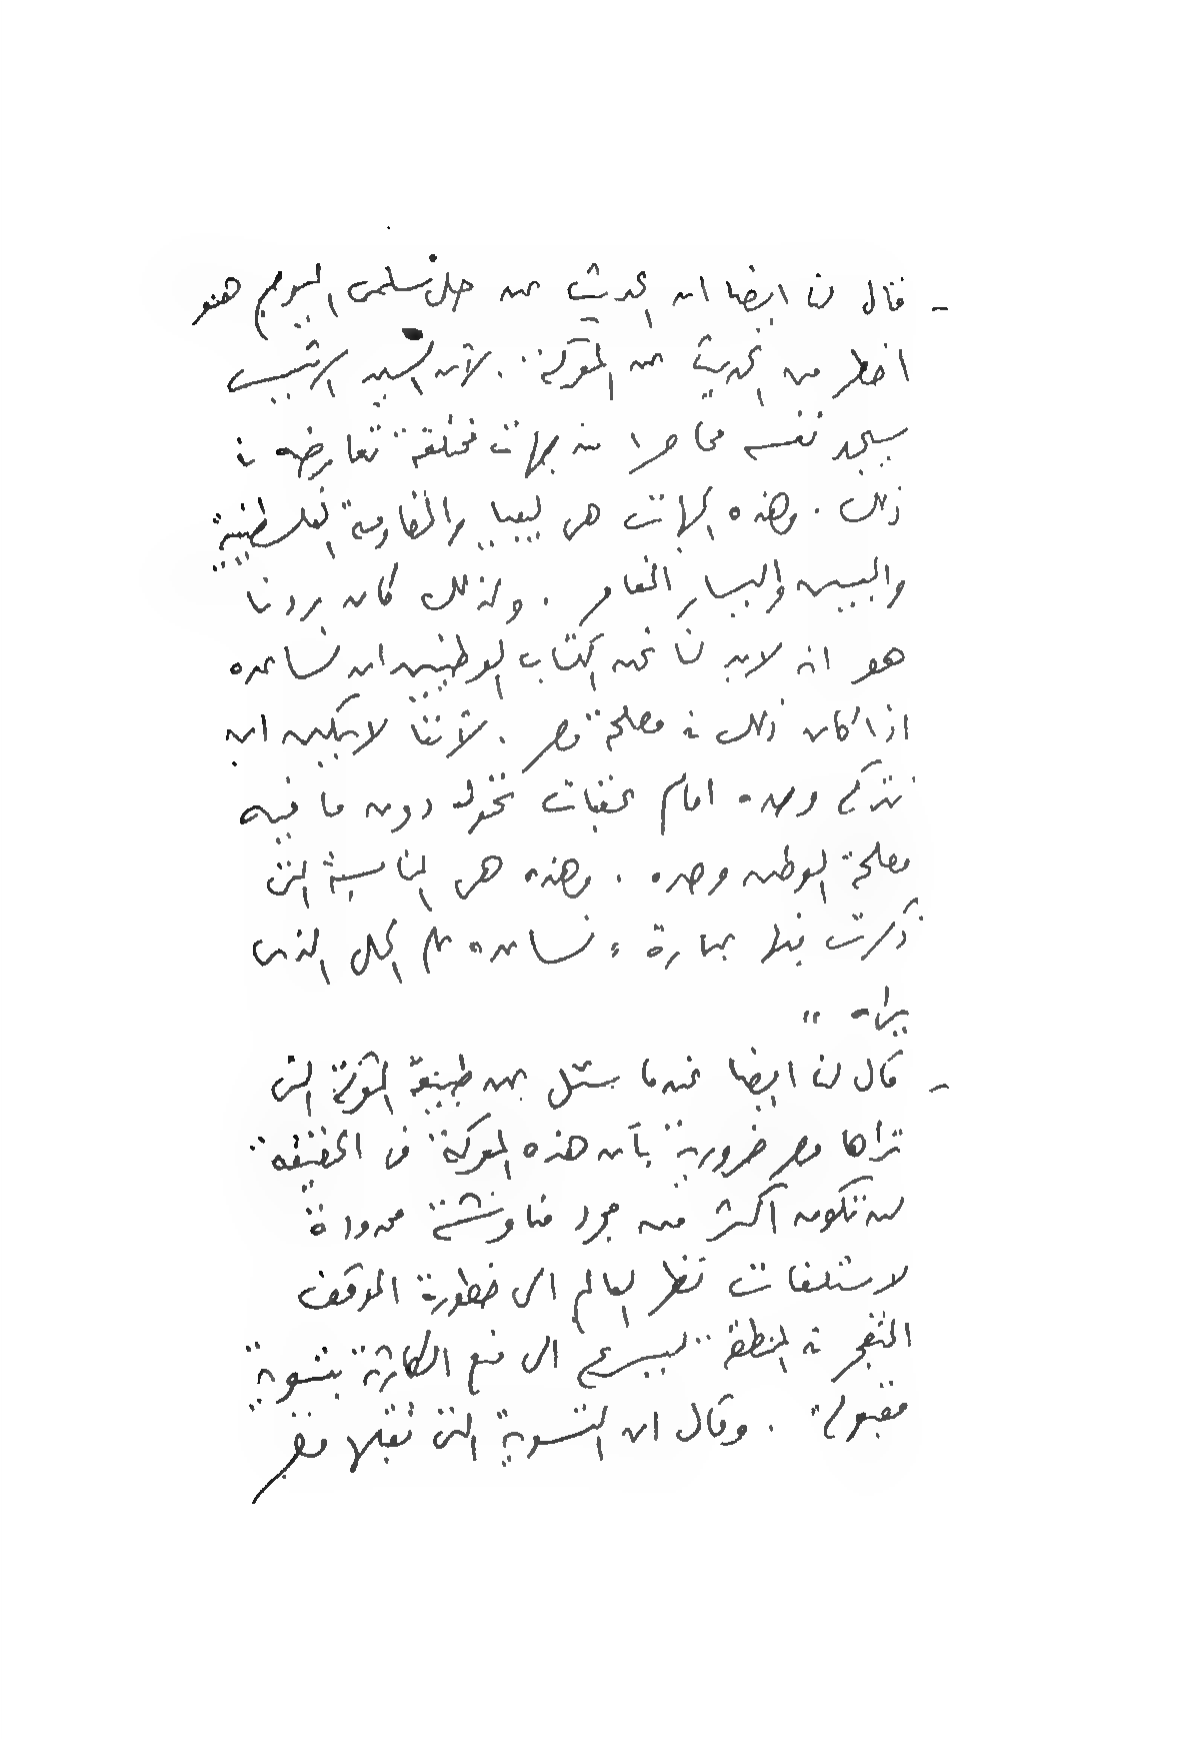 - قال لنا ايضا ان الحديث عن حل سلمى اليوم هو
اخطر من الحديث عن المعركة . لأن السيد الرئيس
سيجد نفسه محاصرا من جهات مختلفة تعارضه فى
ذلك . وهذه الجهات هى ليبيا والمقاومة الفلسطينية
واليمين واليسار المغامر . ولذلك كان ردنا
هو انه لابد لنا نحن الكتاب الوطنيين ان نساعده
اذا كان ذلك فى مصلحة مصر . لأننا لا يمكن ان
نتركه وحده امام عقبات تحول دون ما فيه
مصلحة الوطن وحده . وهذه هى المناسبة التى
ذكرت فيها عبارة " نساعده على الحل الذى
يراه "
- قال لنا ايضا عندما سئل عن طبيعة المعركة التى
تراها مصر ضرورية بأن هذه المعركة فى الحقيقة
لن تكون أكثر من مجرد مناوشة محدودة
لاستلفات نظر العالم الى خطورة الموقف
المتفجر فى المنطقة ليسرع الى منع الكارثة بتسوية
مقبولة . وقال ان التسوية التى تقبلها مصر